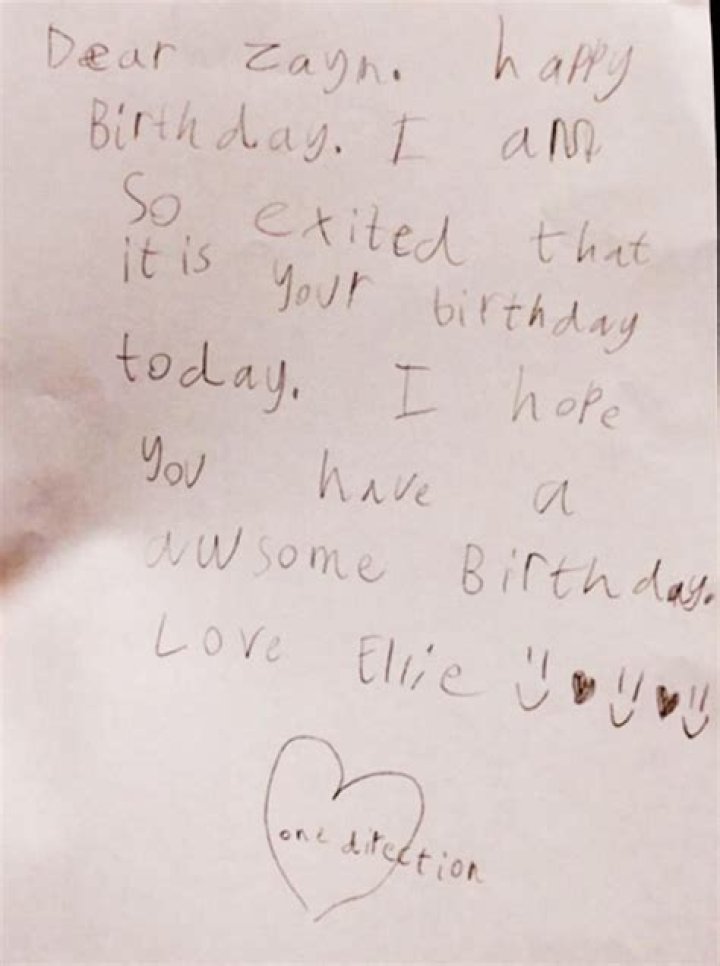 Dear Zayn. happy
Birthday. I am
So exited that
it is your birthday
today. I hope
you have a
awsome Birthday.
Love Ellie
one direction